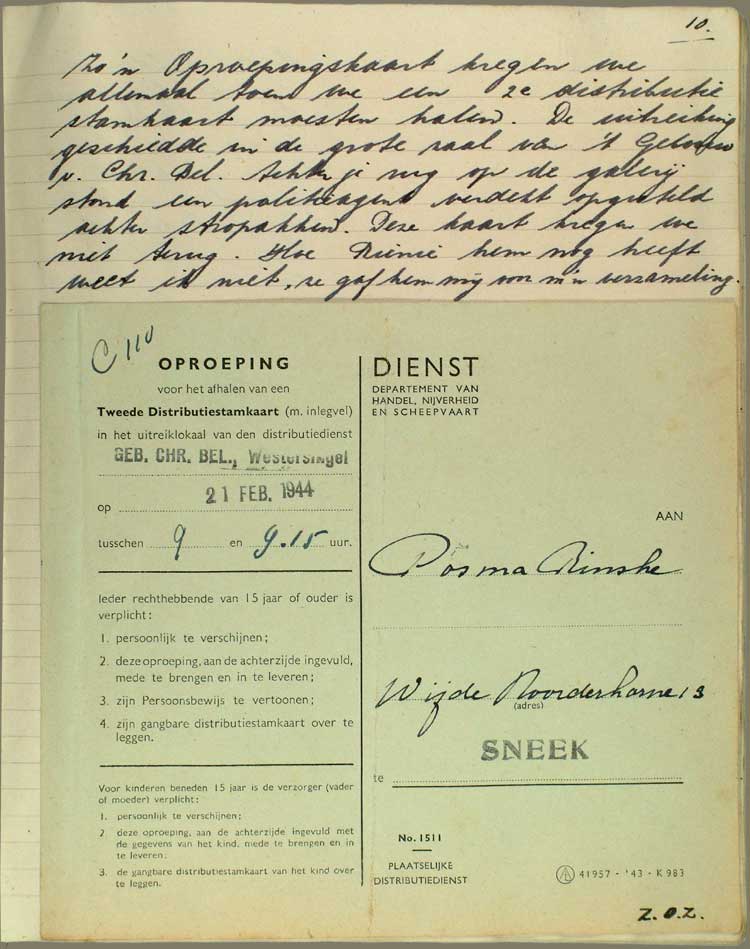 10.
Zo'n Oproepingskaart kregen we
allemaal toen we een 2e distributie
stamkaart moesten halen. De uitreiking
geschiedde in de grote zaal van 't Gebouw
v. Chr. Bel. Achter je rug op de galerij
stond een politieagent verdekt opgesteld
achter stropakken. Deze kaart kregen we
niet terug. Hoe Rienie hem nog heeft
weet ik niet, ze gaf hem mij voor m'n verzameling.
C 110
OPROEPING
voor het afhalen van een
Tweede Distributiestamkaart (m. inlegvel)
in het uitreiklokaal van den distributiedienst
GEB. CHR. BEL., Westersingel
op 21 FEB. 1944
tusschen 9 en 9.15 uur.
Ieder rechthebbende van 15 jaar of ouder is
verplicht:
1. persoonlijk te verschijnen;
2. deze oproeping, aan de achterzijde ingevuld,
mede te brengen en in te leveren;
3. zijn Persoonsbewijs te vertoonen;
4. zijn gangbare distributiestamkaart over te
leggen.
Voor kinderen beneden 15 jaar is de verzorger (vader
of moeder) verplicht:
1. persoonlijk te verschijnen;
2. deze oproeping, aan de achterzijde ingevuld met
de gegevens van het kind, mede te brengen en in
te leveren;
3. de gangbare distributiestamkaart van het kind over
te leggen.
DIENST
DEPARTEMENT VAN
HANDEL, NIJVERHEID
EN SCHEEPVAART
AAN
Posma Rinske
Wijde Noorderhorne 13
(adres)
SNEEK
te
No. 1511
PLAATSELIJKE
DISTRIBUTIEDIENST
41957 - '43 - K 983
Z.O.Z.